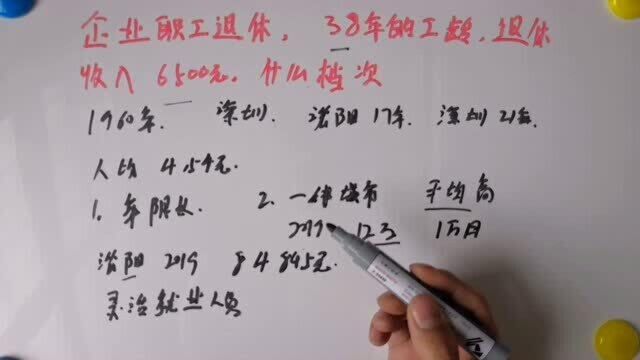 企业职工退休，38年的工龄，退休
收入6500元，什么档次
1960年，深圳，洛阳17年，深圳21年，
人均 454元
1、年限长，
2、一线城市 平均高
2019 12.3 1万/月
洛阳 2019 84895元，
灵活就业人员